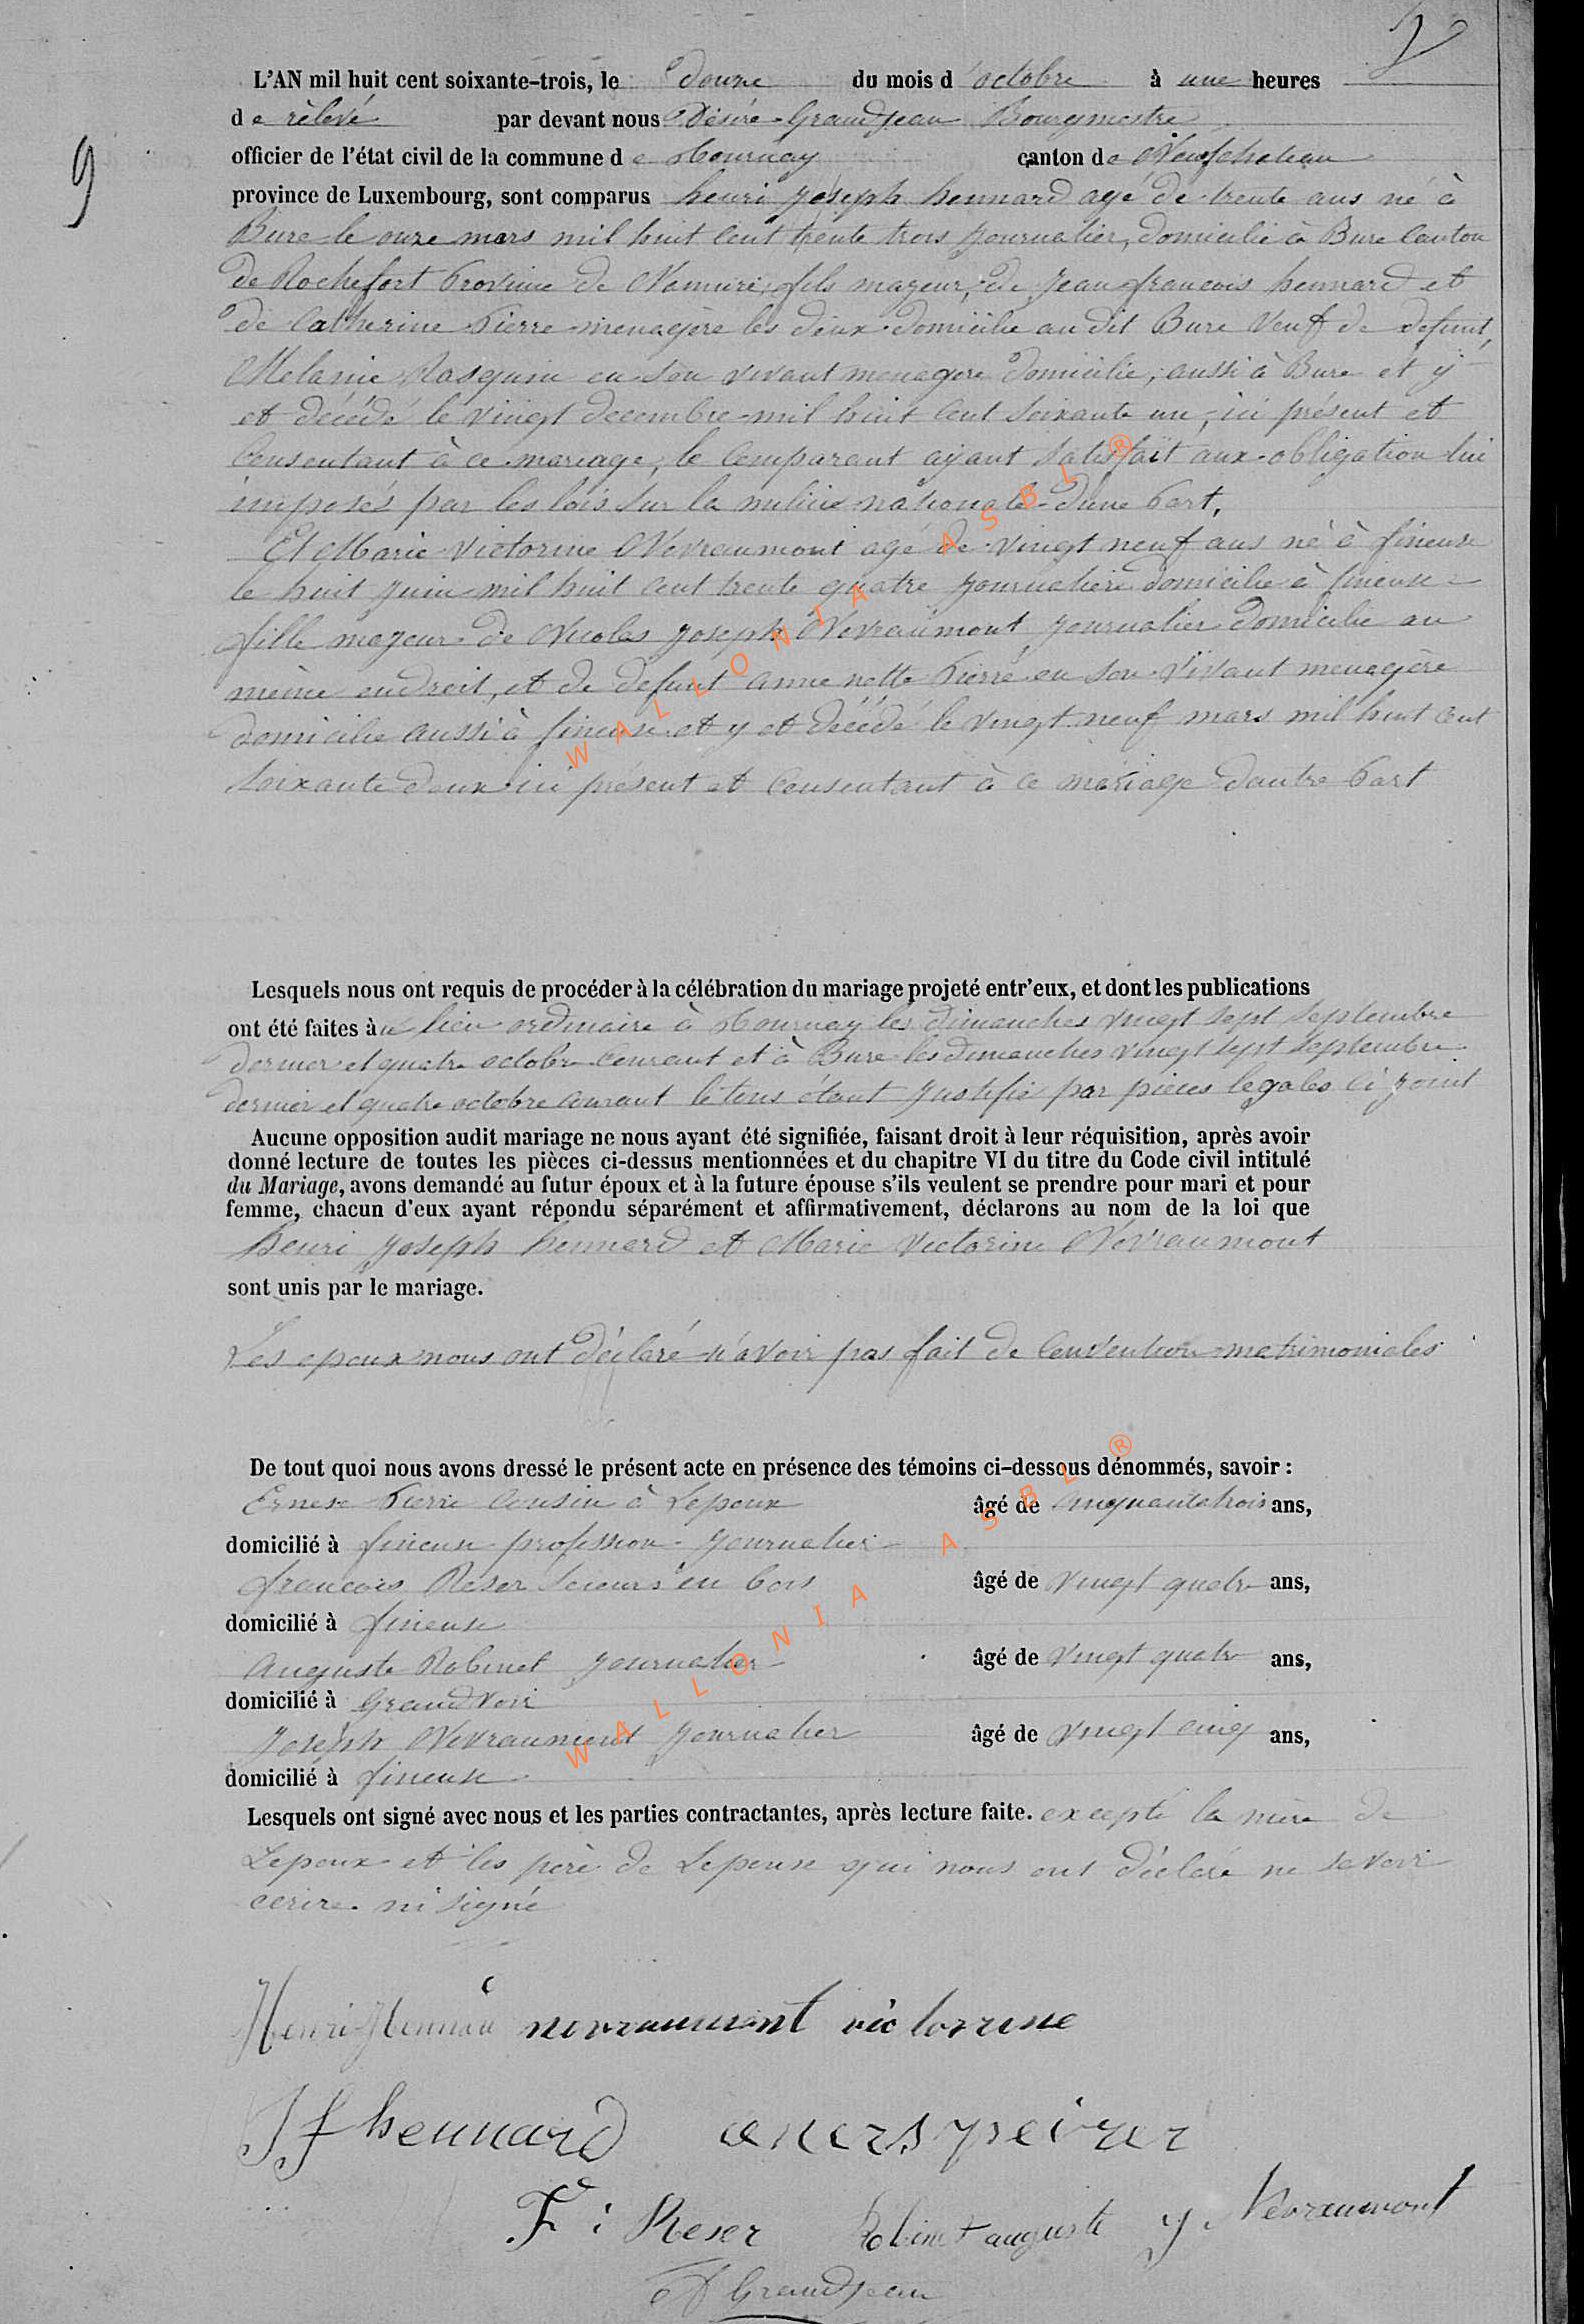 9
L'AN mil huit cent soixante-trois, le douze du mois d'octobre à une heures
de rélevé par devant nous Désiré Grandjean Bourgmestre
officier de l'état civil de la commune de Tournay canton de Neufchateau
province de Luxembourg, sont comparus henri joseph hennard agé de trente ans né à
Bure le onze mars mil huit cent trente trois journalier, domicilié à Bure Canton
de Rochefort Province de Namure, fils majeur, de jean françois hennard et
de Catherine Pierre menagère les deux domicilie au dit Bure Veuf de defunt,
Melanie Rasquin en son vivant menagere domicilie, aussi à Bure et y
et décédé le vingt decembre mil huit cent soixante un, ici présent et
Consentant à ce mariage, le Comparant ayant satisfait aux obligation lui
imposés par les lois sur la milice nationale d'une Part,
Et Marie Victorine Nevraumont agé de vingt neuf ans né à fineuse
le huit juin mil huit cent trente quatre journalière domicilie à fineuse
fille majeure de Nicolas joseph Nevraumont journalier domicilie au
même endroit, et de defunt anne nette Pierre en son vivant menagère
domicilie aussi à fineuse et y et décédé le vingt neuf mars mil huit cent
soixante deux ici présent et Consentant à ce mariage dautre Part
Lesquels nous ont requis de procéder à la célébration du mariage projeté entr'eux, et dont les publications
ont été faites au lieu ordinaire à Tournay les dimanches vingt sept septembre
dernier et quatre octobre Courant et à Bure les dimanches vingt sept septembre
dernier et quatre octobre courant le tous étant justifié par pieces legales ci joint
Aucune opposition audit mariage ne nous ayant été signifiée, faisant droit à leur réquisition, après avoir
donné lecture de toutes les pièces ci-dessus mentionnées et du chapitre VI du titre du Code civil intitulé
du Mariage, avons demandé au futur époux et à la future épouse s'ils veulent se prendre pour mari et pour
femme, chacun d'eux ayant répondu séparément et affirmativement, déclarons au nom de la loi que
henri joseph hennard et Marie Victorine Névraumont
sont unis par le mariage.
Les epoux nous ont déclaré n'avoir pas fait de Convention matrimoniales
De tout quoi nous avons dressé le présent acte en présence des témoins ci-dessous dénommés, savoir :
Pierre Cousin à Lepoux âgé de cinquante trois ans,
domicilié à fineuse profession journalier
francois Reser scieurs en bois âgé de vingt quatre ans,
domicilié à fineuse
Auguste Robinet journalier âgé de vingt quatre ans,
domicilié à Grandvoir
Joseph Nevraumont journalier âgé de vingt cinq ans,
domicilié à fineuse
Lesquels ont signé avec nous et les parties contractantes, après lecture faite. excepté la mère de
Lepoux et les père de Lepouse qui nous ont déclaré ne savoir
ecrire ni signé
Henri Hennard nevraumont victorine
J f hennard
F : Reser Robinet auguste j. Nevraumont
Grandjean
WALLONIA ASBL ®
WALLONIA ASBL ®